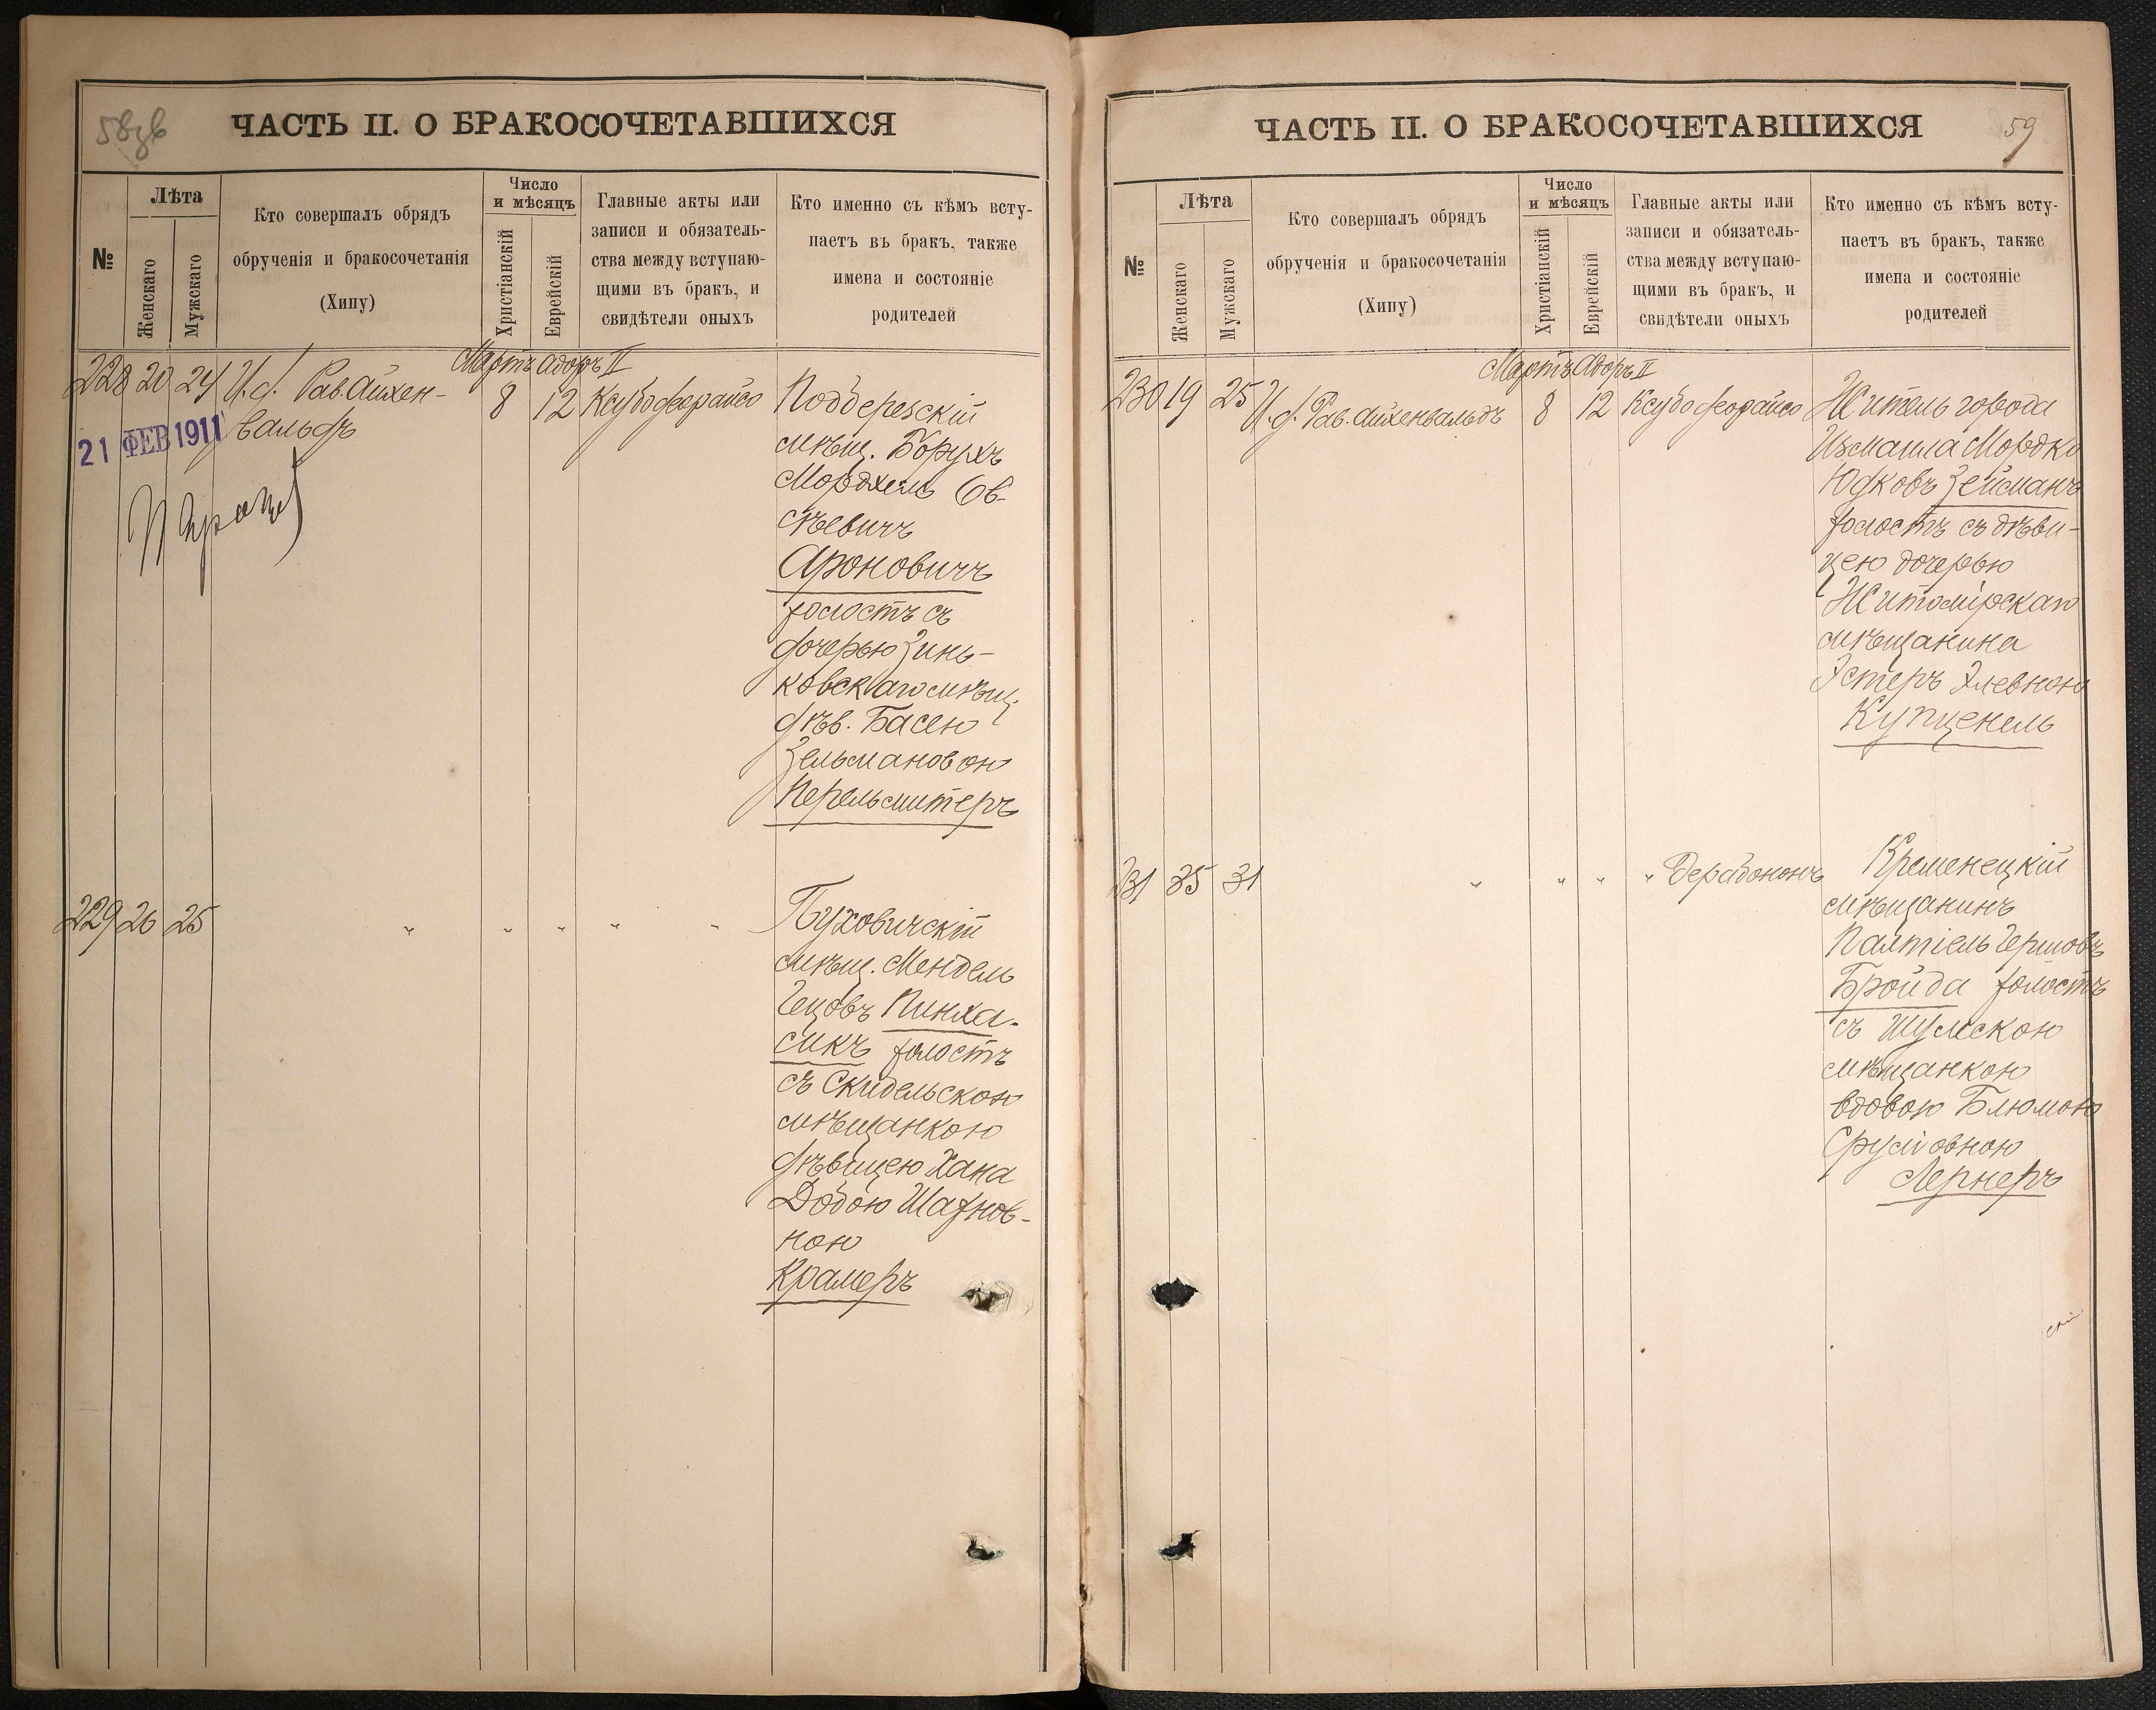 58 об
ЧАСТЬ II. О БРАКОСОЧЕТАВШИХСЯ
№
Лѣта
Женскаго
Мужскаго
Кто совершалъ обрядъ
обрученія и бракосочетанія
(Хипу)
Число
и мѣсяцъ
Христіанскій
Еврейскій
Главные акты или
записи и обязатель-
ства между вступаю-
щими въ бракъ, и
свидѣтели оныхъ
Кто именно съ кѣмъ всту-
паетъ въ бракъ, также
имена и состояніе
родителей
Мартъ Адоръ II
228 20 24 И.д. Рав. Айхен-
вальдъ
8 12 Ксубо деорайсо
21 ФЕВ 1911
Поддерезскій
мѣщ. Борухъ
Мордхель Ов-
сѣевичъ
Ароновичъ
холостъ съ
дочерью Зинь-
ковскаго мѣщ.
дѣв. Басею
Зельмановою
Перельмитеръ
229 26 25 " " " " "
Пуховичскій
мѣщ. Мендель
Гецовъ Пинха-
сикъ холостъ
съ Скидельскою
мѣщанкою
дѣвицею Хана
Добою Шахнов-
ною
Крамеръ
ЧАСТЬ II. О БРАКОСОЧЕТАВШИХСЯ
59
№
Лѣта
Женскаго
Мужскаго
Кто совершалъ обрядъ
обрученія и бракосочетанія
(Хипу)
Число
и мѣсяцъ
Христіанскій
Еврейскій
Главные акты или
записи и обязатель-
ства между вступаю-
щими въ бракъ, и
свидѣтели оныхъ
Кто именно съ кѣмъ всту-
паетъ въ бракъ, также
имена и состояніе
родителей
Мартъ Адоръ II
230 19 25 И.д. Рав. Айхенвальдъ 8 12 Ксубо деорайсо
Житель города
Измаила Мордко
Юдковъ Зейсманъ
холостъ съ дѣви-
цею дочерью
Житомірскаго
мѣщанина
Эстеръ Элевною
Купценель
231 35 31 " " " " Дерабононъ
Кременецкій
мѣщанинъ
Палтіель Гершовъ
Бройда холостъ
съ Шумскою
мѣщанкою
вдовою Блюмою
Сруловною
Лернеръ